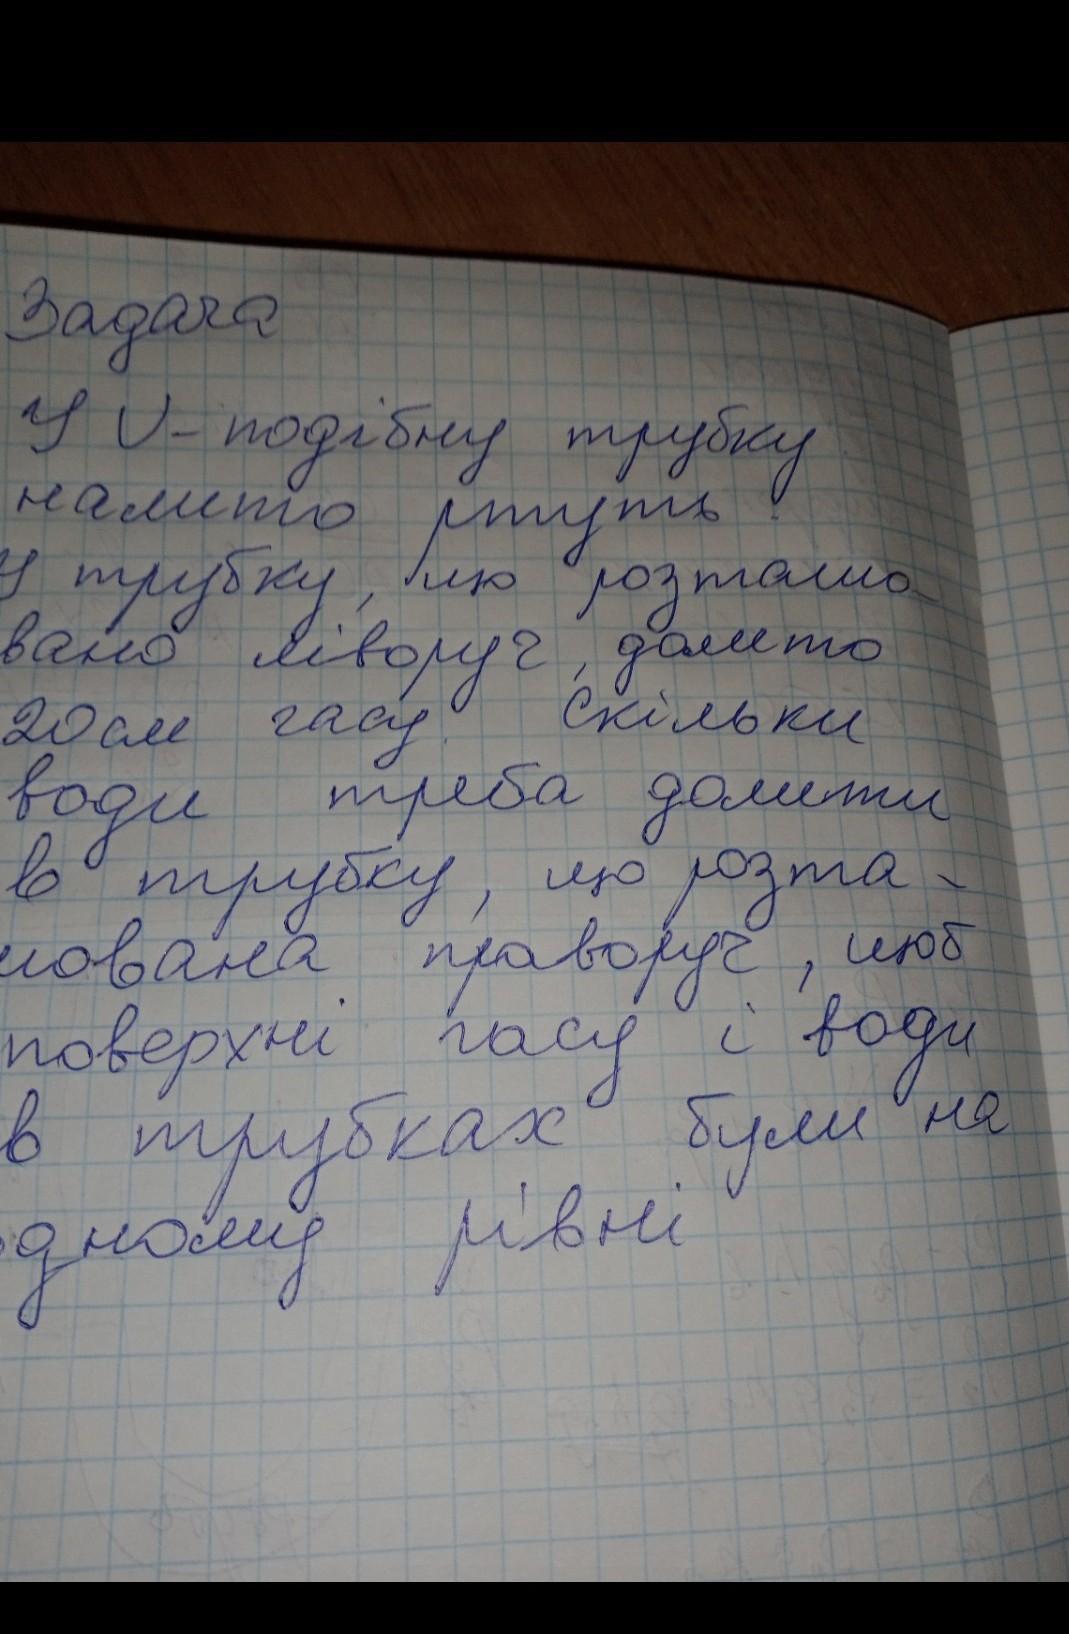 Задача
У U-подібну трубку
налито ртуть.
У трубку, що розташо-
вано ліворуч, долито
20см гасу. Скільки
води треба долити
в трубку, що розта-
шована праворуч, щоб
поверхні гасу і води
в трубках були на
одному рівні